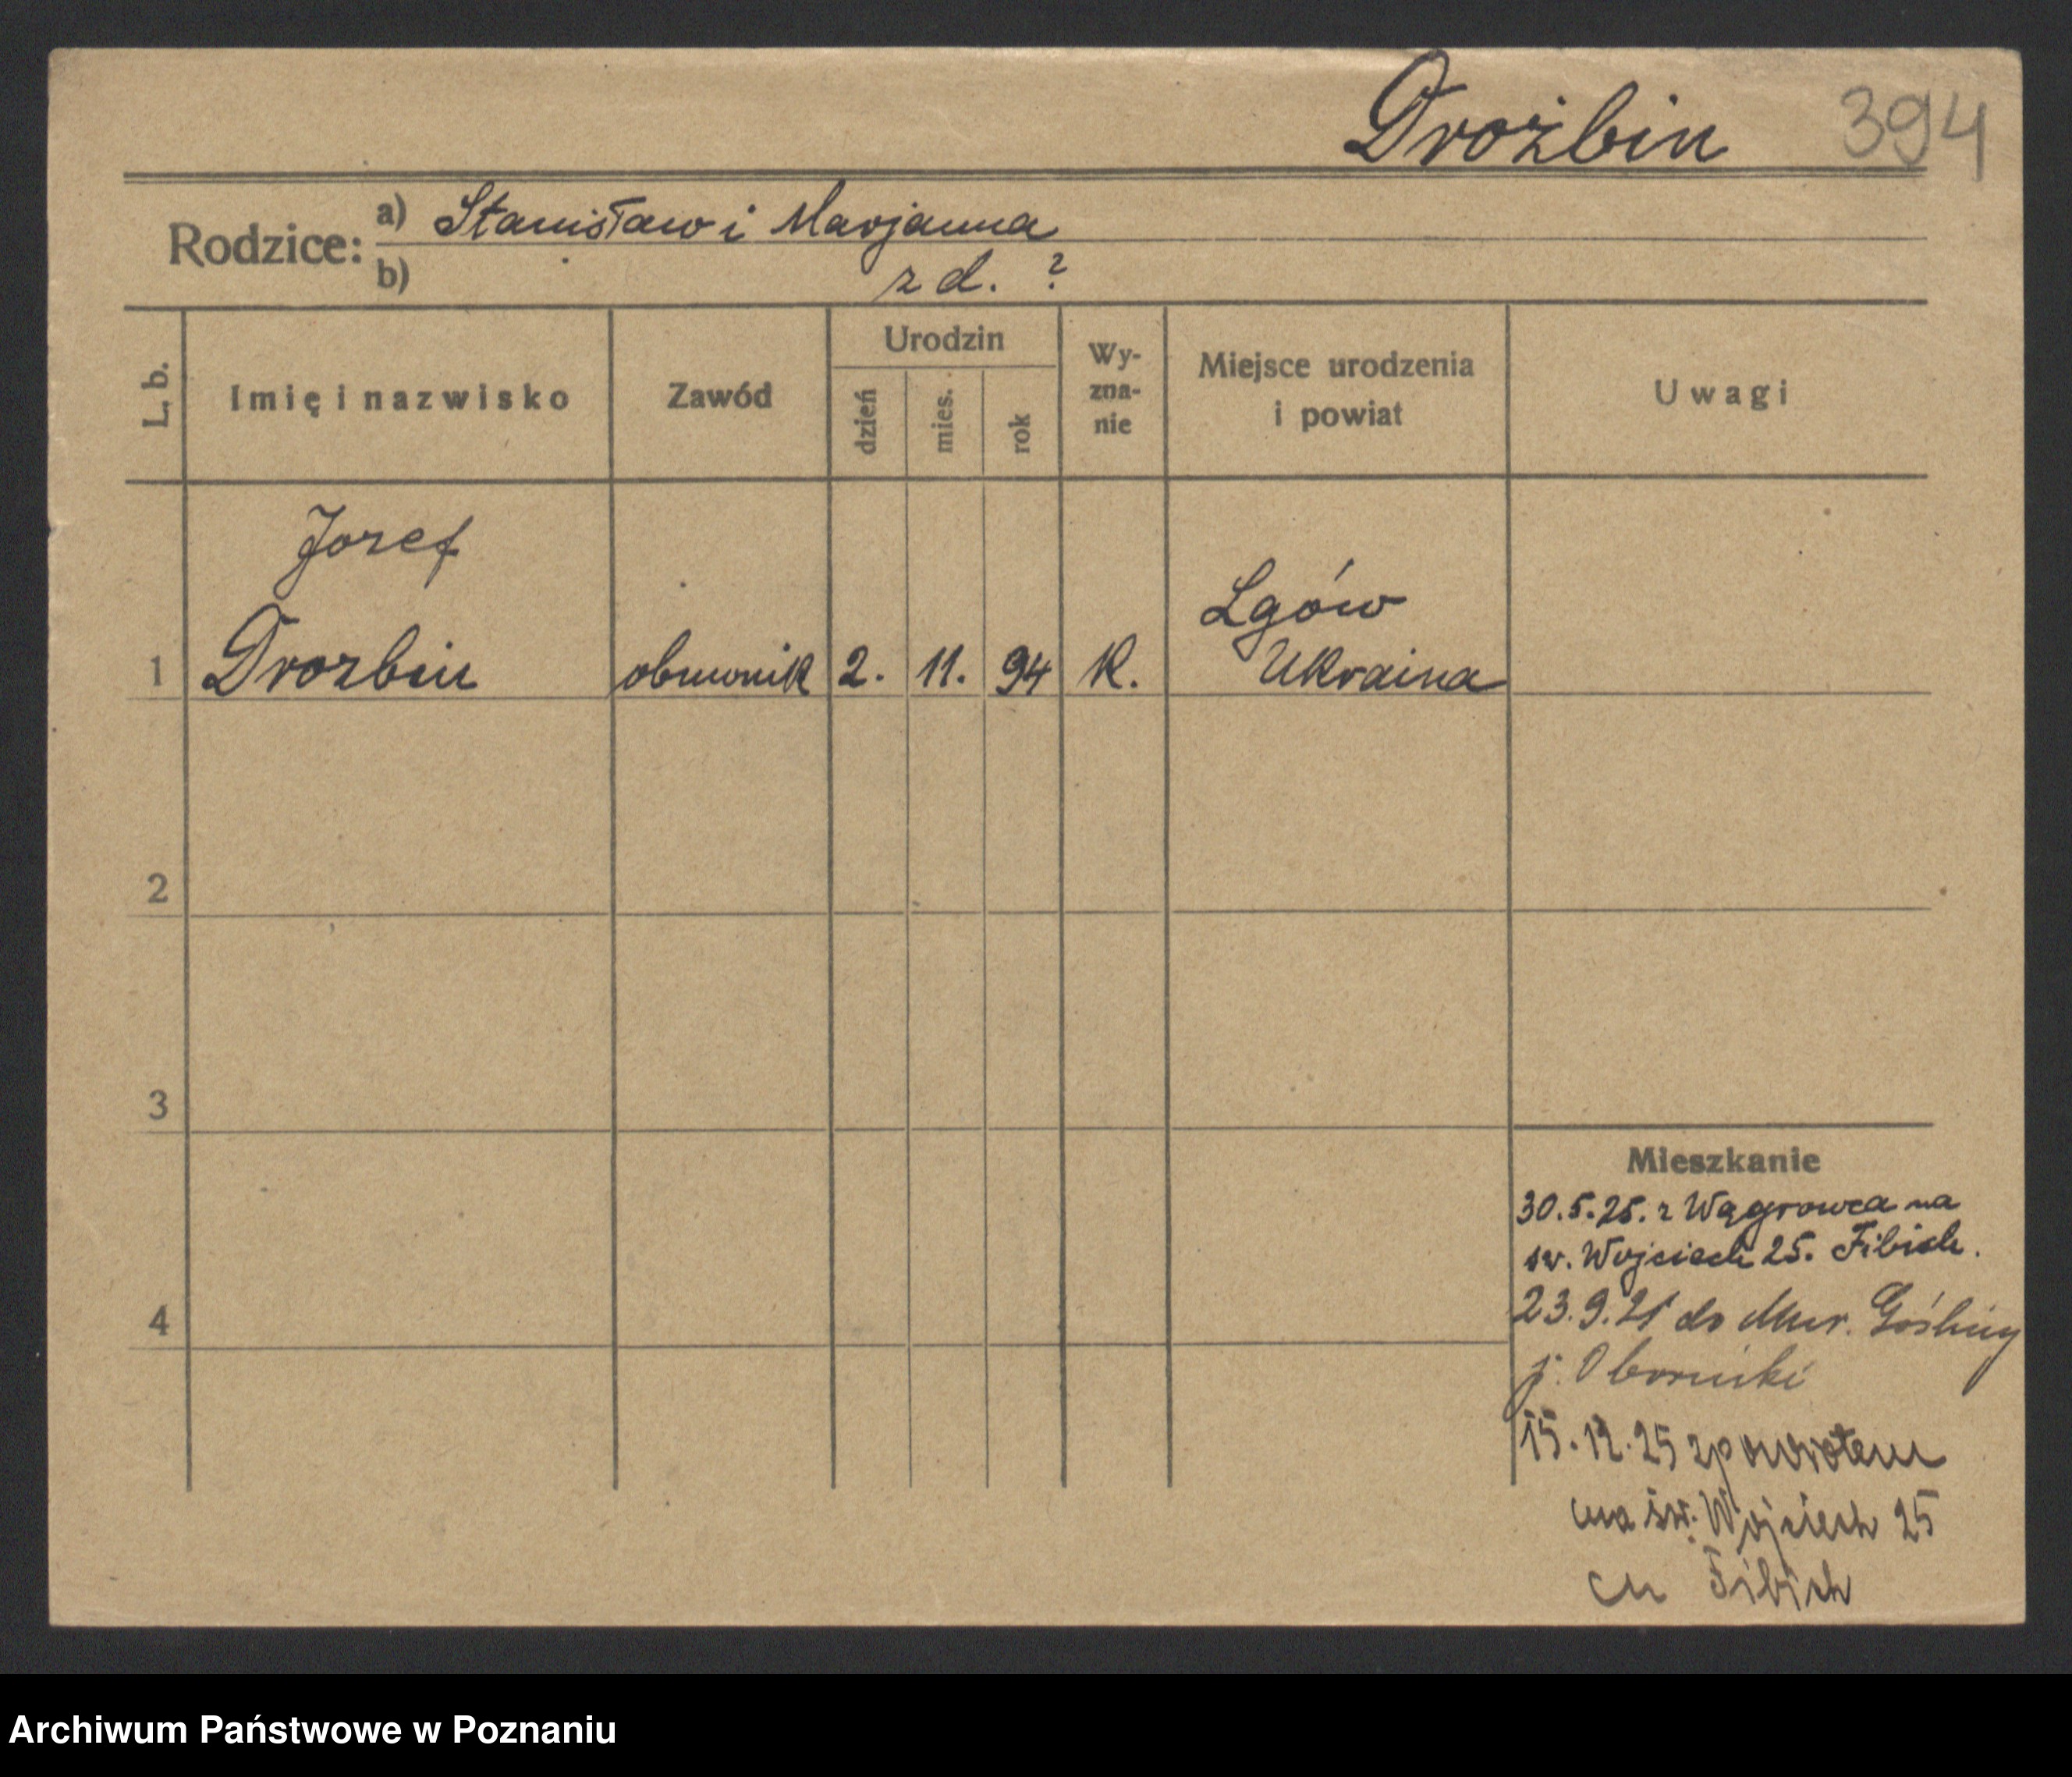 Drożbin 394
Rodzice: a) Stanisław i Marjanna
b) z d. ?
L. b. Imię i nazwisko Zawód Urodzin dzień mies. rok Wyznanie Miejsce urodzenia i powiat Uwagi
Jozef
Lgów
1 Drozbin 2. 11. 94 K. Ukraina
2
3
Mieszkanie
30.5.25. z Wągrowca na
św. Wojciech 25. Fibich.
4
23.9.25 do Mur. Gośliny
p. Oborniki
15.12.25 zpowrotem
na św. Wojciech 25
u Fibich
Archiwum Państwowe w Poznaniu